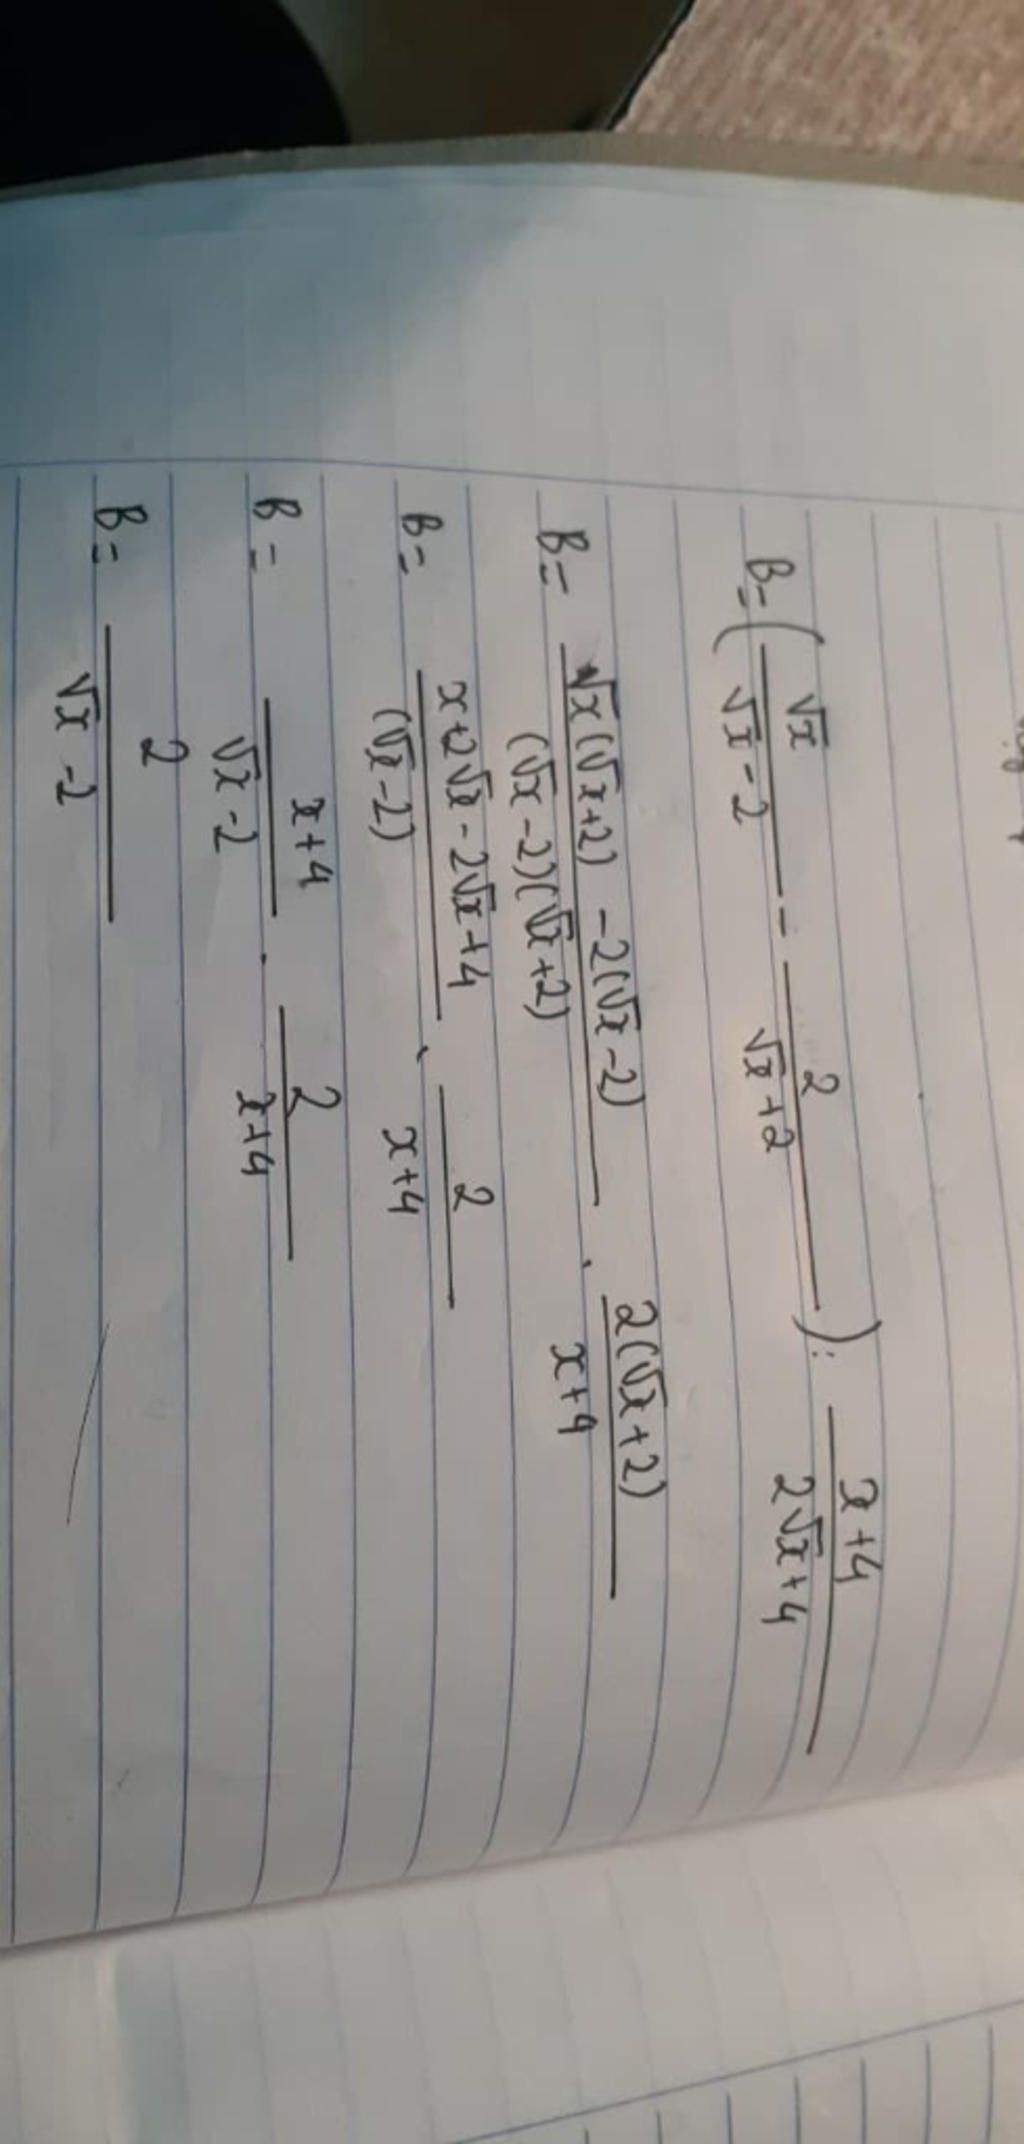 B = ( √x / (√x - 2) - 2 / (√x + 2) ) : (x + 4) / (2√x + 4)
B = (√x(√x + 2) - 2(√x - 2)) / ((√x - 2)(√x + 2)) . 2(√x + 2) / (x + 4)
B = (x + 2√x - 2√x + 4) / (√x - 2) . 2 / (x + 4)
B = (x + 4) / (√x - 2) . 2 / (x + 4)
B = 2 / (√x - 2)